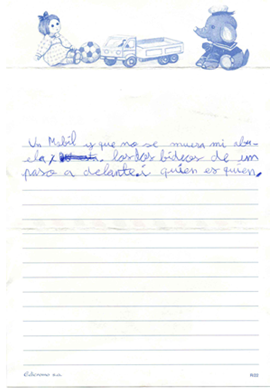 Un Mobil y que no se muera mi abu-
ela y los dos bídeos de un
paso a delante i quien es quien.
Edicromo s.a.